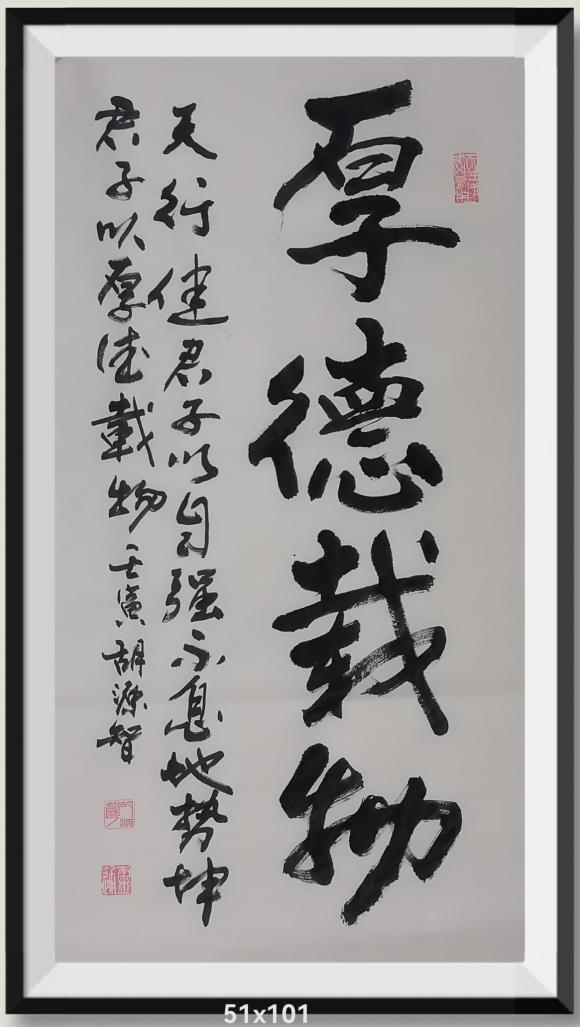 厚德载物
天行健君子以自强不息地势坤
君子以厚德载物壬寅胡源智
51x101